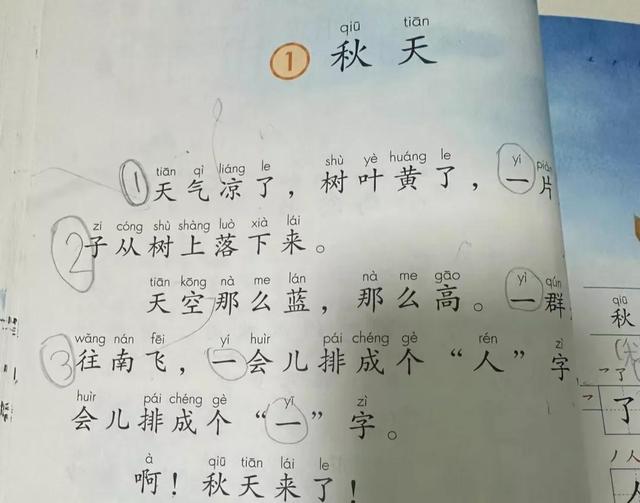 qiū tiān
1 秋天
tiān qì liáng le shù yè huáng le yí
1 天气凉了，树叶黄了，一片
zi cóng shù shàng luò xià lái
2 子从树上落下来。
tiān kōng nà me lán nà me gāo yì qún
天空那么蓝，那么高。一群
wǎng nán fēi yí huìr pái chéng gè rén zì
3 往南飞，一会儿排成个“人”字
huìr pái chéng gè yī zì
会儿排成个“一”字。
à qiū tiān lái le
啊！秋天来了！
qiū
秋
了
人